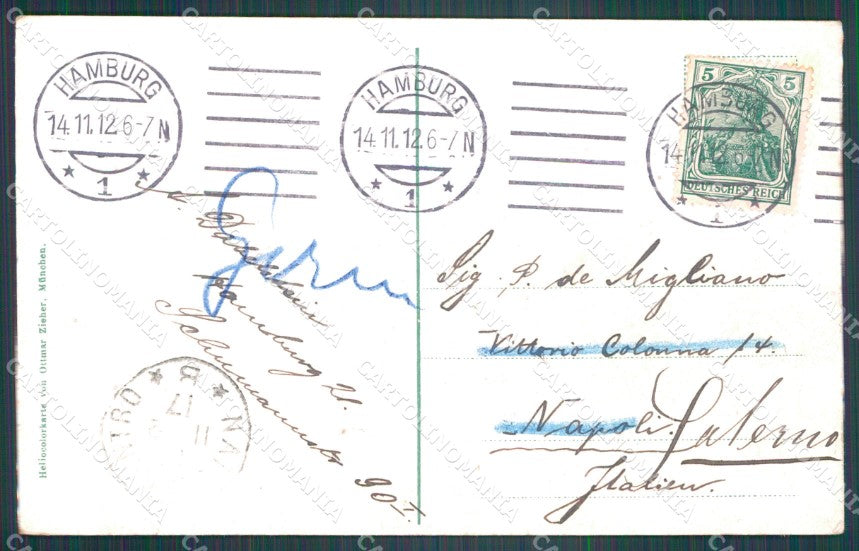 HAMBURG
14.11.12.6-7N
* 1 *
HAMBURG
14.11.12.6-7N
* 1 *
HAMBURG
5 5
DEUTSCHES REICH
1
Hamburg 21.
90 I.
Sig. P. de Migliano
Vittorio Colonna 14.
Napoli. Salerno
Italien.
Heliocolorkarte von Ottmar Zieher, München.
CARTOLINOMANIA